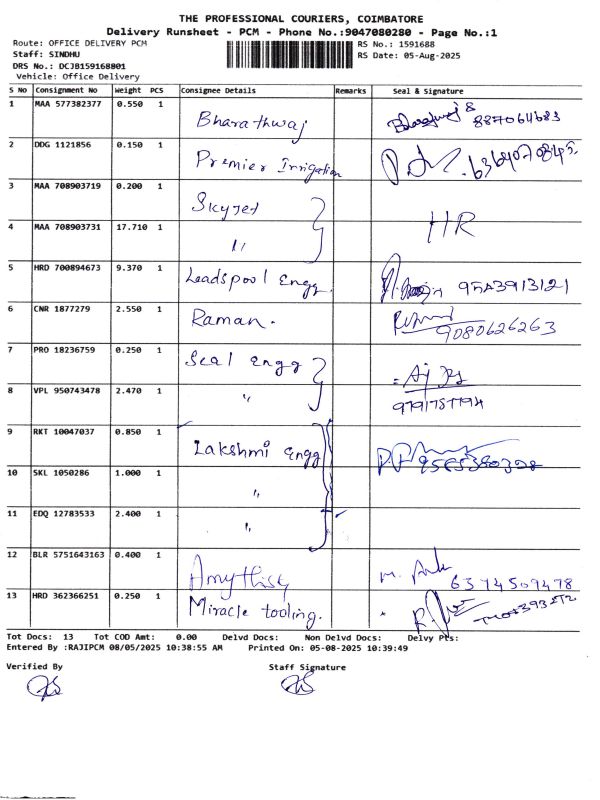 THE PROFESSIONAL COURIERS, COIMBATORE
Delivery Runsheet - PCM - Phone No.:9047080280 - Page No.:1
Route: OFFICE DELIVERY PCM RS No.: 1591688
Staff: SINDHU RS Date: 05-Aug-2025
DRS No.: DCJB159168801
Vehicle: Office Delivery
S No Consignment No Weight PCS Consignee Details Remarks Seal & Signature
1 MAA 577382377 0.550 1 Bharathwaj
2 DDG 1121856 0.150 1 Premier Irrigation
3 MAA 708903719 0.200 1 Skyjet
4 MAA 708903731 17.710 1 " HR
5 HRD 700894673 9.370 1 Leadspool Engg.
6 CNR 1877279 2.550 1 Raman. 9080626263
7 PRO 18236759 0.250 1 Seal Engg
8 VPL 950743478 2.470 1 "
9 RKT 10047037 0.850 1 Lakshmi Engg
10 SKL 1050286 1.000 1 "
11 EDQ 12783533 2.400 1 "
12 BLR 5751643163 0.400 1 6374509478
13 HRD 362366251 0.250 1 Miracle tooling.
Tot Docs: 13 Tot COD Amt: 0.00 Delvd Docs: Non Delvd Docs: Delvy Pts:
Entered By :RAJIPCM 08/05/2025 10:38:55 AM Printed On: 05-08-2025 10:39:49
Verified By Staff Signature